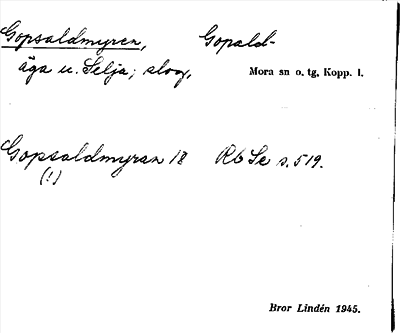 Gopsaldmyren, Gopald-
äga u. Selja; slog, Mora sn o. tg, Kopp. l.
Gopsaldmyran 18 Rb Se s. 519.
(!)
Bror Lindén 1945.